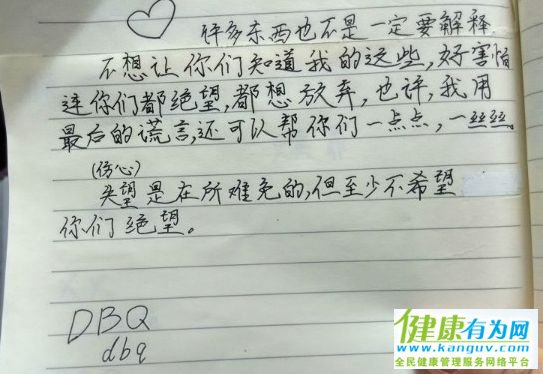 许多东西也不是一定要解释
不想让你们知道我的这些，好害怕
连你们都绝望，都想放弃，也许，我用
最后的谎言，还可以帮你们一点点，一丝丝
(伤心)
失望是在所难免的，但至少不希望
你们绝望。
DBQ
dbq
健康有为网
www.kanguv.com
全民健康管理服务网络平台